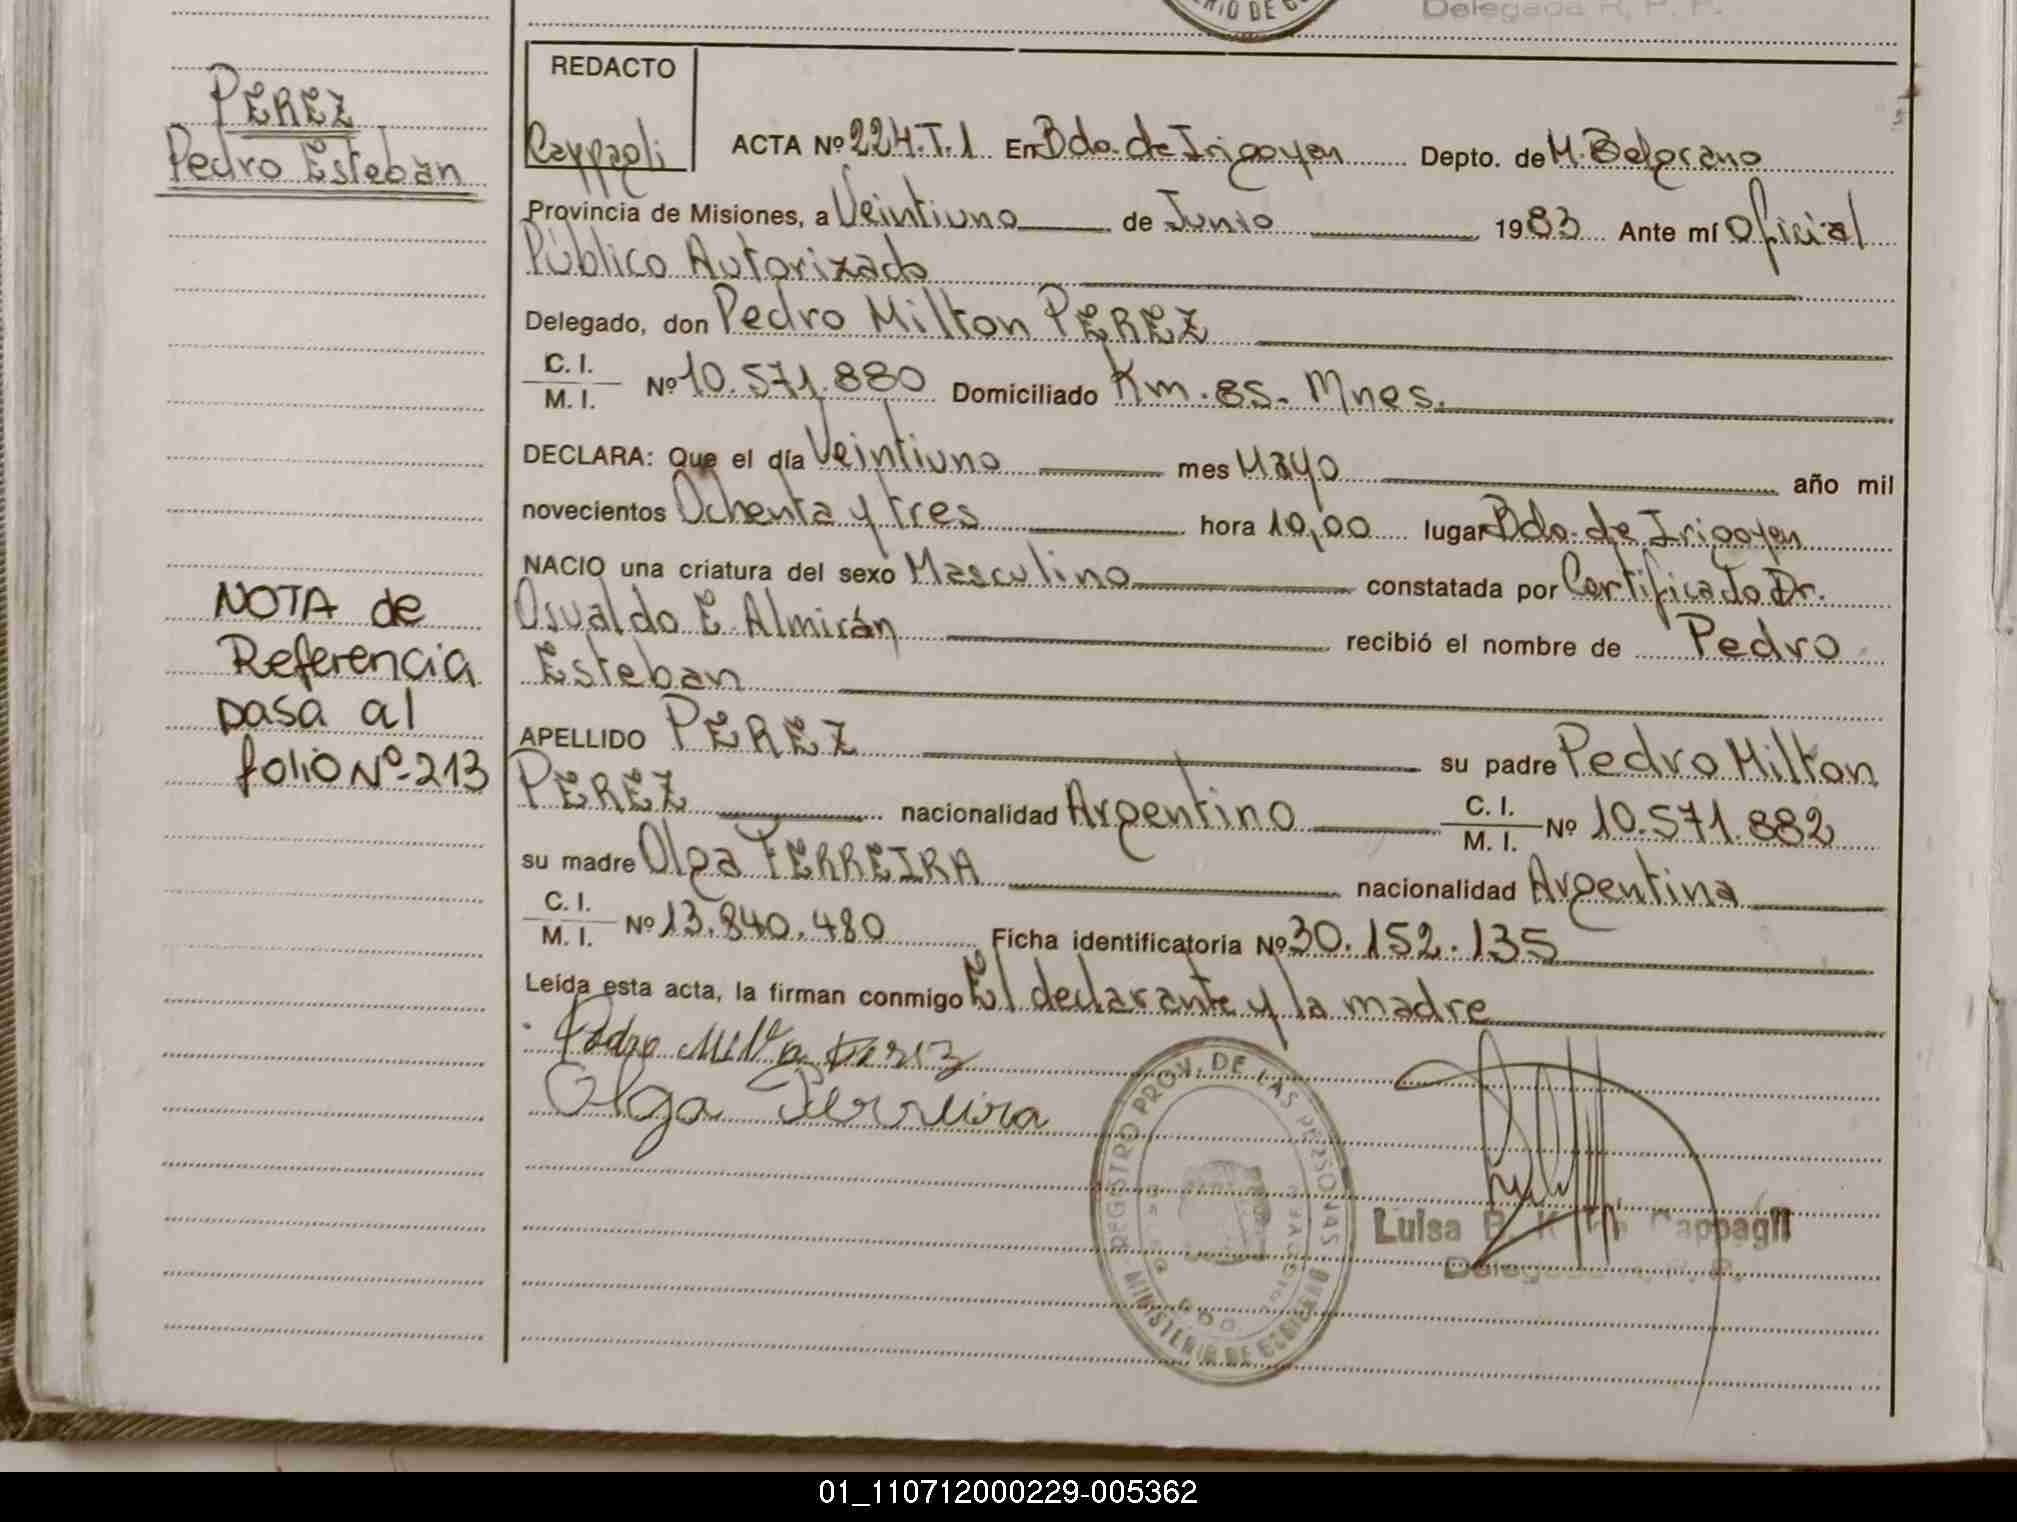 Delegada R. P. P.
PEREZ
Pedro Esteban
REDACTO
Cappagli
ACTA Nº 224.T.1 En Bdo. de Irigoyen Depto. de M. Belgrano
Provincia de Misiones, a Veintiuno de Junio 1983 Ante mí Oficial
Público Autorizado
Delegado, don Pedro Milton PEREZ
C. I.
M. I. Nº 10.571.880 Domiciliado Km. 85. Mnes.
DECLARA: Que el día Veintiuno mes Mayo año mil
novecientos Ochenta y tres hora 10,00 lugar Bdo. de Irigoyen
NACIO una criatura del sexo Masculino constatada por Certificado Dr.
Osvaldo E. Almirán recibió el nombre de Pedro
Esteban
APELLIDO PEREZ su padre Pedro Milton
PEREZ nacionalidad Argentino C. I. M. I. Nº 10.571.882
su madre Olga FERREIRA nacionalidad Argentina
C. I.
M. I. Nº 13.840.480 Ficha identificatoria Nº 30.152.135
Leída esta acta, la firman conmigo El declarante y la madre
Pedro Milton Perez
Olga Ferreira
NOTA de
Referencia
pasa al
folio Nº-213
REGISTRO PROV. DE LAS PERSONAS
MINISTERIO DE GOBIERNO
Luisa Cappagli
Delegada R. P. P.
01_110712000229-005362